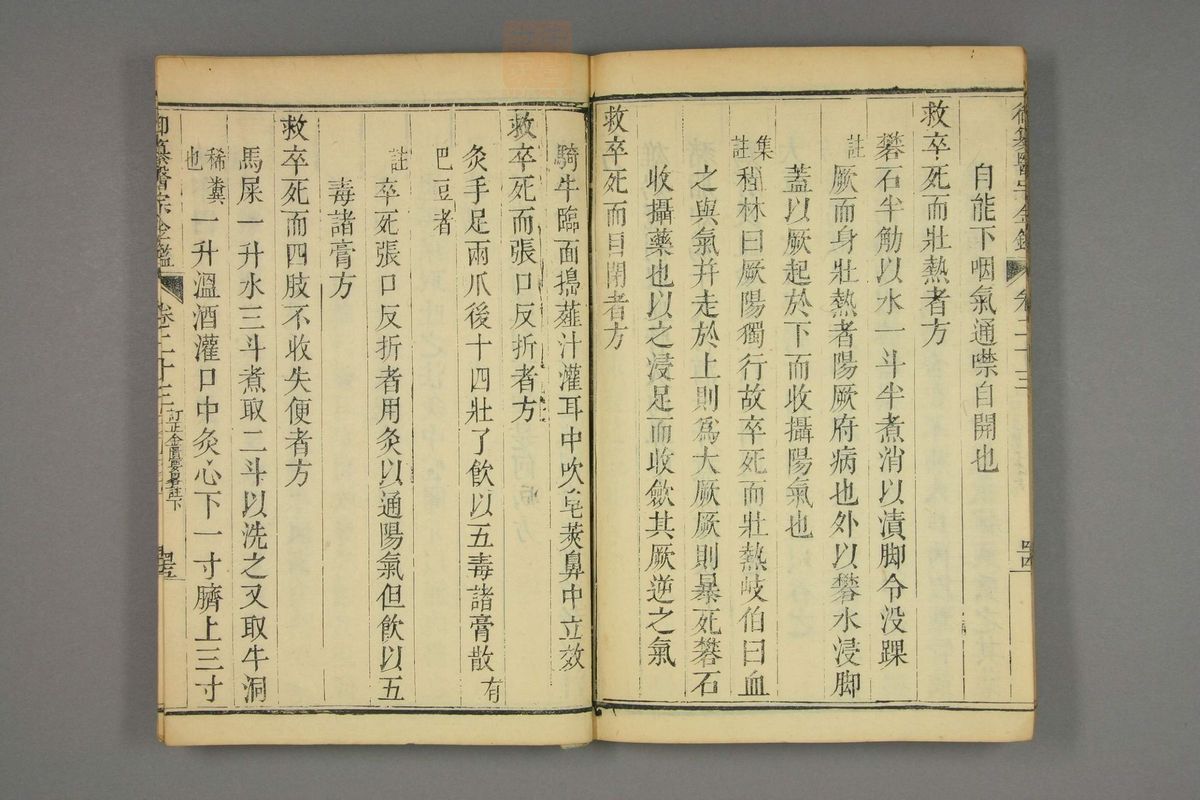 御纂醫宗金鑑 卷二十三
自能下咽氣通噤自開也
救卒死而壯熱者方
礬石半觔以水一斗半煮消以漬脚令没踝
註 厥而身壯熱者陽厥府病也外以礬水浸脚
蓋以厥起於下而收攝陽氣也
集註 程林曰厥陽獨行故卒死而壯熱岐伯曰血
之與氣并走於上則為大厥厥則暴死礬石
收攝藥也以之浸足而收斂其厥逆之氣
救卒死而目閉者方
騎牛臨面搗薤汁灌耳中吹皂莢鼻中立效
救卒死而張口反折者方
灸手足兩爪後十四壯了飲以五毒諸膏散有
巴豆者
註 卒死張口反折者用灸以通陽氣但飲以五
毒諸膏方
救卒死而四肢不收失便者方
馬屎一升水三斗煮取二斗以洗之又取牛洞
稀糞也 一升溫酒灌口中灸心下一寸臍上三寸
御纂醫宗金鑑 卷二十三 訂正金匱要畧註下